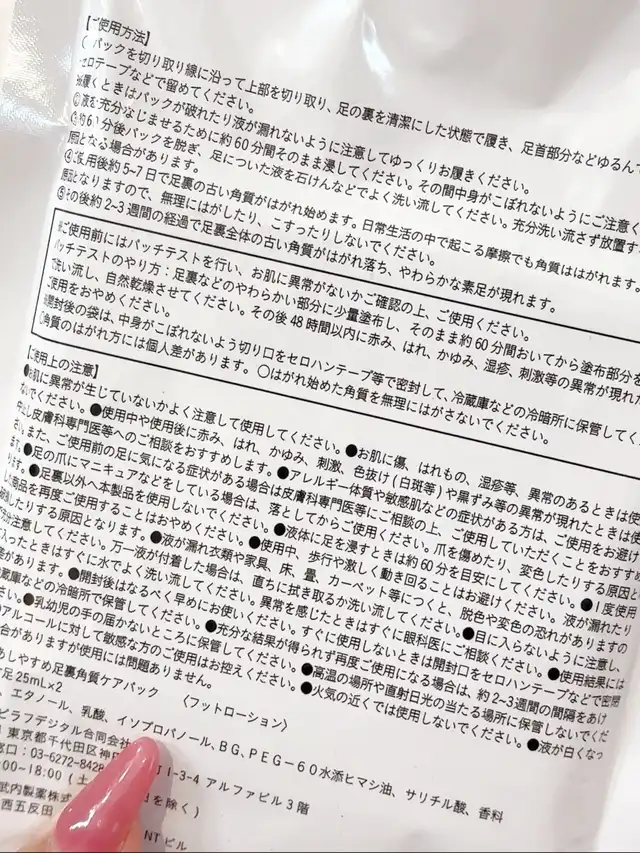 【ご使用方法】
パックを切り取り線に沿って上部を切り取り、足の裏を清潔にした状態で履き、足首部分などゆるんで
セロテープなどで留めてください。
※履くときはパックが破れたり液が漏れないように注意してゆっくりお履きください。
②液を充分なじませるために約60分間そのまま浸してください。その間中身がこぼれないようにご注意く
分後パックを脱ぎ、足についた液を石けんなどでよく洗い流してください。充分洗い流さず放置す
原因となる場合があります。
④ご使用後約5~7日で足裏の古い角質がはがれ始めます。日常生活の中で起こる摩擦でも角質ははがれます。
原因となりますので、無理にはがしたり、こすったりしないでください。
⑤その後約2~3週間の経過で足裏全体の古い角質がはがれ落ち、やわらかな素足が現れます。
※ご使用前にはパッチテストを行い、お肌に異常がないかご確認の上、ご使用ください。
パッチテストのやり方：足裏などのやわらかい部分に少量塗布し、そのまま約60分間おいてから塗布部分を
洗い流し、自然乾燥させてください。その後48時間以内に赤み、はれ、かゆみ、湿疹、刺激等の異常が現れた
ご使用をおやめください。
開封後の袋は、中身がこぼれないよう切り口をセロハンテープ等で密封して、冷蔵庫などの冷暗所で保管してく
○角質のはがれ方には個人差があります。○はがれ始めた角質を無理にはがさないでください。
【ご使用上の注意】
●お肌に異常が生じていないかよく注意して使用してください。●お肌に傷、はれもの、湿疹等、異常のあるときは使
ないでください。●使用中や使用後に赤み、はれ、かゆみ、刺激、色抜け(白斑等)や黒ずみ等の異常が現れたときは使
中止し皮膚科専門医等へのご相談をおすすめします。●アレルギー体質や敏感肌などの症状がある方は、ご使用をお避け
さい。また、ご使用前の足に気になる症状がある場合は皮膚科専門医等にご相談の上、ご使用していただくことをおすす
ます。●足の爪にマニキュアなどをしている場合は、落としてからご使用ください。爪を傷めたり、変色したりする原因と
ます。●足裏以外へ本製品を使用しないでください。●液体に足を浸すときは約60分を目安にしてください。●1度使用
した商品を再度ご使用することはおやめください。●使用中、歩行や激しく動き回ることはお避けください。液が漏れたり
破損したりする原因となります。●液が漏れ衣類や家具、床、畳、カーペット等につくと、脱色や変色の恐れがありますの
で注意してください。万一液が付着した場合は、直ちに拭き取るか洗い流してください。●目に入らないように注意し、
入ったときはすぐに水でよく洗い流してください。異常を感じたときはすぐに眼科医にご相談ください。●使用結果には
差があります。●開封後はなるべく早めにお使いください。すぐに使用しないときは開封口をセロハンテープなどで密閉
冷蔵庫などの冷暗所で保管してください。●充分な結果が得られず再度ご使用になる場合は、約2~3週間の間隔をあけ
さい。●乳幼児の手の届かないところに保管してください。●高温の場所や直射日光の当たる場所に保管しないでくだ
アルコールに対して敏感な方のご使用はお控えください。●火気の近くでは使用しないでください。●液が白くなっ
合がありますが使用には問題ありません。
あしやすめ足裏角質ケアパック 〈フットローション〉
足25mL×2
エタノール、乳酸、イソプロパノール、BG、PEG-60水添ヒマシ油、サリチル酸、香料
ピラフデジタル合同会社
東京都千代田区神田 1-3-4 アルファビル3階
窓口：03-6272-8428
:00~18:00 (土 日を除く)
武内製薬株式
西五反田 NTビル